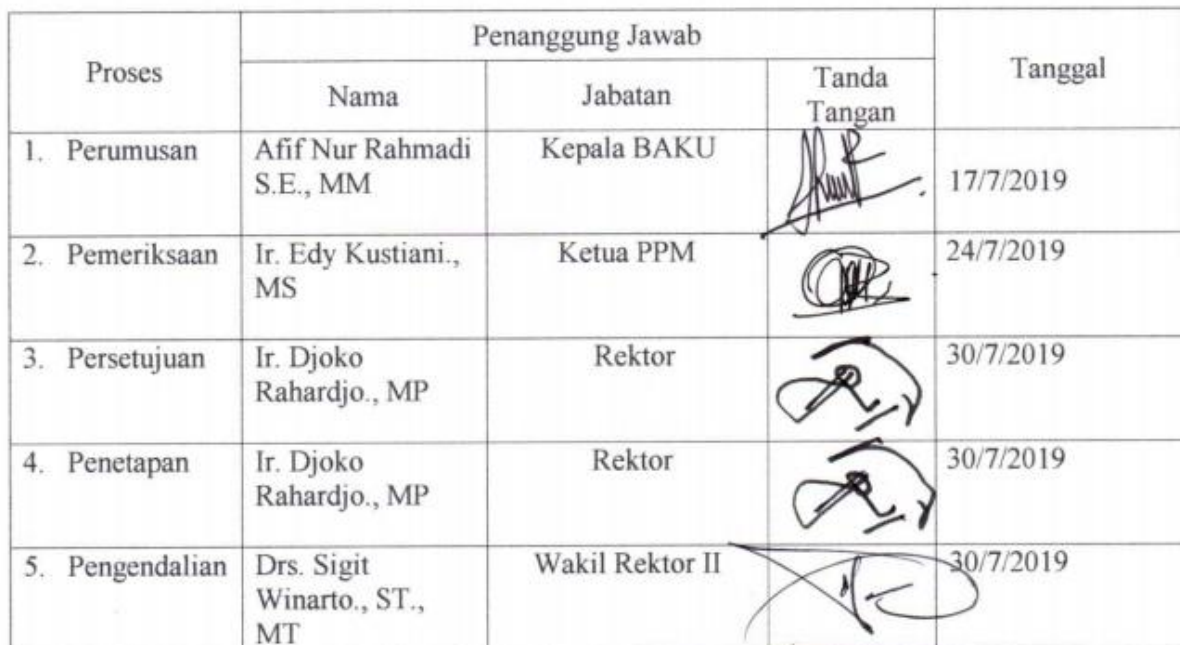 Proses
Penanggung Jawab
Tanggal
Nama
Jabatan
Tanda
Tangan
1. Perumusan
Afif Nur Rahmadi
S.E., MM
Kepala BAKU
17/7/2019
2. Pemeriksaan
Ir. Edy Kustiani.,
MS
Ketua PPM
24/7/2019
3. Persetujuan
Ir. Djoko
Rahardjo., MP
Rektor
30/7/2019
4. Penetapan
Ir. Djoko
Rahardjo., MP
Rektor
30/7/2019
5. Pengendalian
Drs. Sigit
Winarto., ST.,
MT
Wakil Rektor II
30/7/2019